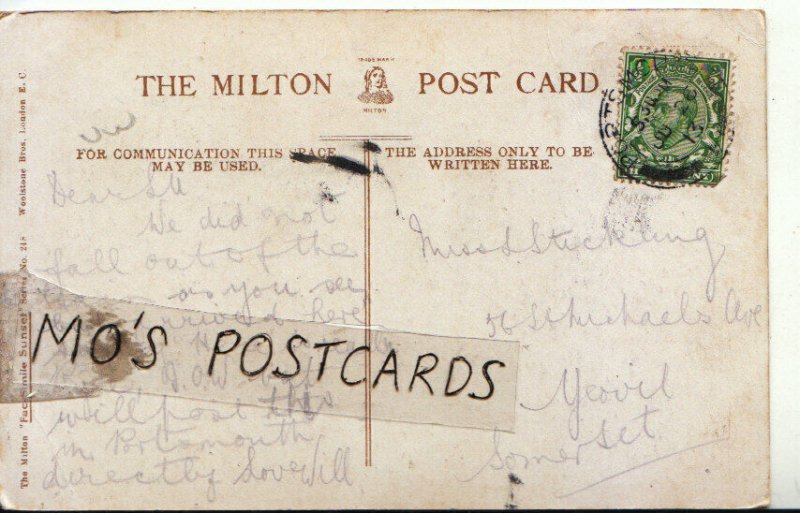 THE MILTON POST CARD
TRADE MARK
MILTON
FOR COMMUNICATION THIS SPACE
MAY BE USED.
THE ADDRESS ONLY TO BE
WRITTEN HERE.
The Milton "Fac-Simile Sunset" Series No. 248 Woolstone Bros. London E. C.
Dear
We did not
fall out of the
as you see
arrived here
will post this
in Portsmouth
directly love Will
MO'S POSTCARDS
Miss L Stickling
56 St Michaels Ave
Yeovil
Somerset